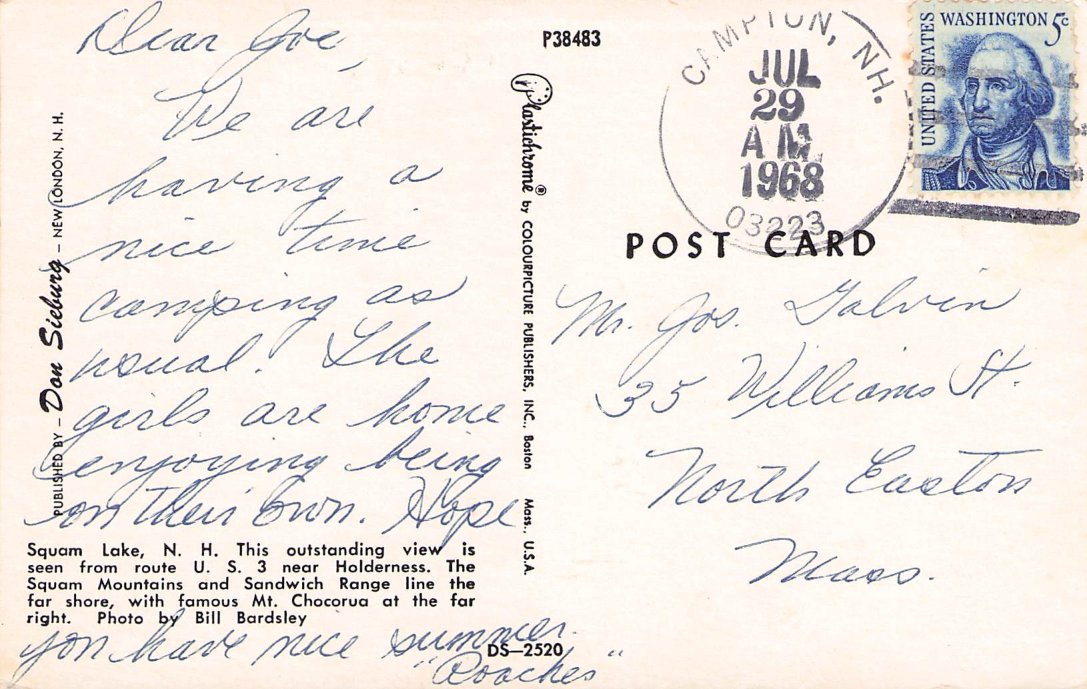 Dear Joe,
We are
having a
nice time
camping as
usual. The
girls are home
enjoying being
on their own. Hope
you have nice summer.
"Roaches"
PUBLISHED BY – Don Sieburg – NEW LONDON, N. H.
Squam Lake, N. H. This outstanding view is
seen from route U. S. 3 near Holderness. The
Squam Mountains and Sandwich Range line the
far shore, with famous Mt. Chocorua at the far
right. Photo by Bill Bardsley
DS–2520
Plastichrome® by COLOURPICTURE PUBLISHERS, INC., Boston Mass., U.S.A.
P38483
CAMPTON, NH.
JUL
29
A M.
1968
03223
UNITED STATES
WASHINGTON 5c
POST CARD
Mr. Jos. Galvin
35 Williams St.
North Easton
Mass.